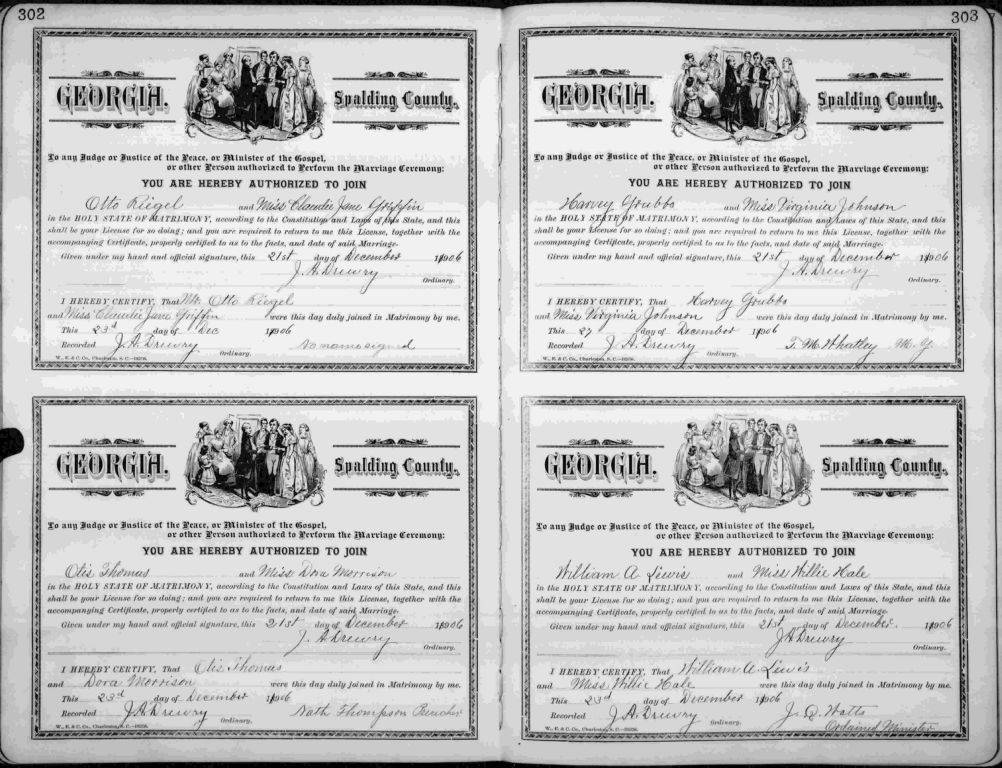 302
GEORGIA. Spalding County.
To any Judge or Justice of the Peace, or Minister of the Gospel,
or other Person authorized to Perform the Marriage Ceremony:
YOU ARE HEREBY AUTHORIZED TO JOIN
Otto Riegel and Miss Claudie Jane Griffin
in the HOLY STATE OF MATRIMONY, according to the Constitution and Laws of this State, and this
shall be your License for so doing; and you are required to return to me this License, together with the
accompanying Certificate, properly certified to as to the facts, and date of said Marriage.
Given under my hand and official signature, this 21st day of December 1906
J. A. Drewry
Ordinary.
I HEREBY CERTIFY, That Mr. Otto Riegel
and Miss Claudie Jane Griffin were this day duly joined in Matrimony by me.
This 23d day of Dec 1906
Recorded J. A. Drewry Ordinary. No name signed
W., E. & C. Co., Charleston, S. C.
GEORGIA. Spalding County.
To any Judge or Justice of the Peace, or Minister of the Gospel,
or other Person authorized to Perform the Marriage Ceremony:
YOU ARE HEREBY AUTHORIZED TO JOIN
Otis Thomas and Miss Dora Morrison
in the HOLY STATE OF MATRIMONY, according to the Constitution and Laws of this State, and this
shall be your License for so doing; and you are required to return to me this License, together with the
accompanying Certificate, properly certified to as to the facts, and date of said Marriage.
Given under my hand and official signature, this 21st day of December 1906
J. A. Drewry
Ordinary.
I HEREBY CERTIFY, That Otis Thomas
and Dora Morrison were this day duly joined in Matrimony by me.
This 23d day of December 1906
Recorded J. A. Drewry Ordinary. Nath Thompson
W., E. & C. Co., Charleston, S. C.
303
GEORGIA. Spalding County.
To any Judge or Justice of the Peace, or Minister of the Gospel,
or other Person authorized to Perform the Marriage Ceremony:
YOU ARE HEREBY AUTHORIZED TO JOIN
Harvey Grubbs and Miss Virginia Johnson
in the HOLY STATE OF MATRIMONY, according to the Constitution and Laws of this State, and this
shall be your License for so doing; and you are required to return to me this License, together with the
accompanying Certificate, properly certified to as to the facts, and date of said Marriage.
Given under my hand and official signature, this 21st day of December 1906
J. A. Drewry
Ordinary.
I HEREBY CERTIFY, That Harvey Grubbs
and Miss Virginia Johnson were this day duly joined in Matrimony by me.
This 27 day of December 1906
Recorded J. A. Drewry Ordinary. T. M. Whatley M. G.
W., E. & C. Co., Charleston, S. C.
GEORGIA. Spalding County.
To any Judge or Justice of the Peace, or Minister of the Gospel,
or other Person authorized to Perform the Marriage Ceremony:
YOU ARE HEREBY AUTHORIZED TO JOIN
William A Lewis and Miss Willie Hale
in the HOLY STATE OF MATRIMONY, according to the Constitution and Laws of this State, and this
shall be your License for so doing; and you are required to return to me this License, together with the
accompanying Certificate, properly certified to as to the facts, and date of said Marriage.
Given under my hand and official signature, this 21st day of December. 1906
J A Drewry
Ordinary.
I HEREBY CERTIFY, That William A Lewis
and Miss Willie Hale were this day duly joined in Matrimony by me.
This 23d day of December 1906
Recorded J. A. Drewry Ordinary. J. Q. Watts
Ordained Minister
W., E. & C. Co., Charleston, S. C.